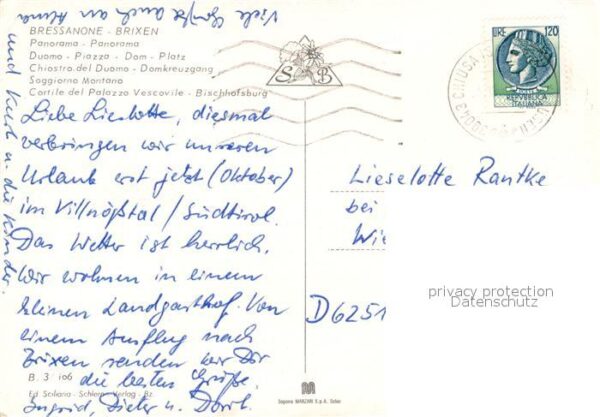 Viele Grüße auch an Alma
und Kurt u. die Kinder.
BRESSANONE - BRIXEN
Panorama - Panorama
Duomo - Piazza - Dom - Platz
Chiostro del Duomo - Domkreuzgang
Soggiorno Montano
Cortile del Palazzo Vescovile - Bischofsburg
S B
LIRE 120
REPVBBLICA
ITALIANA
39043 CHIUSA
Liebe Lieslotte, diesmal
verbringen wir unseren
Urlaub erst jetzt (Oktober)
im Villnößtal / Südtirol.
Das Wetter ist herrlich.
Wir wohnen in einem
kleinen Landgasthof. Von
einem Ausflug nach
Brixen senden wir Dir
die besten Grüße
Ingrid, Dieter u. Dorit.
B/3/106
3
Lieselotte Rantke
bei
Wie
D6251
privacy protection
Datenschutz